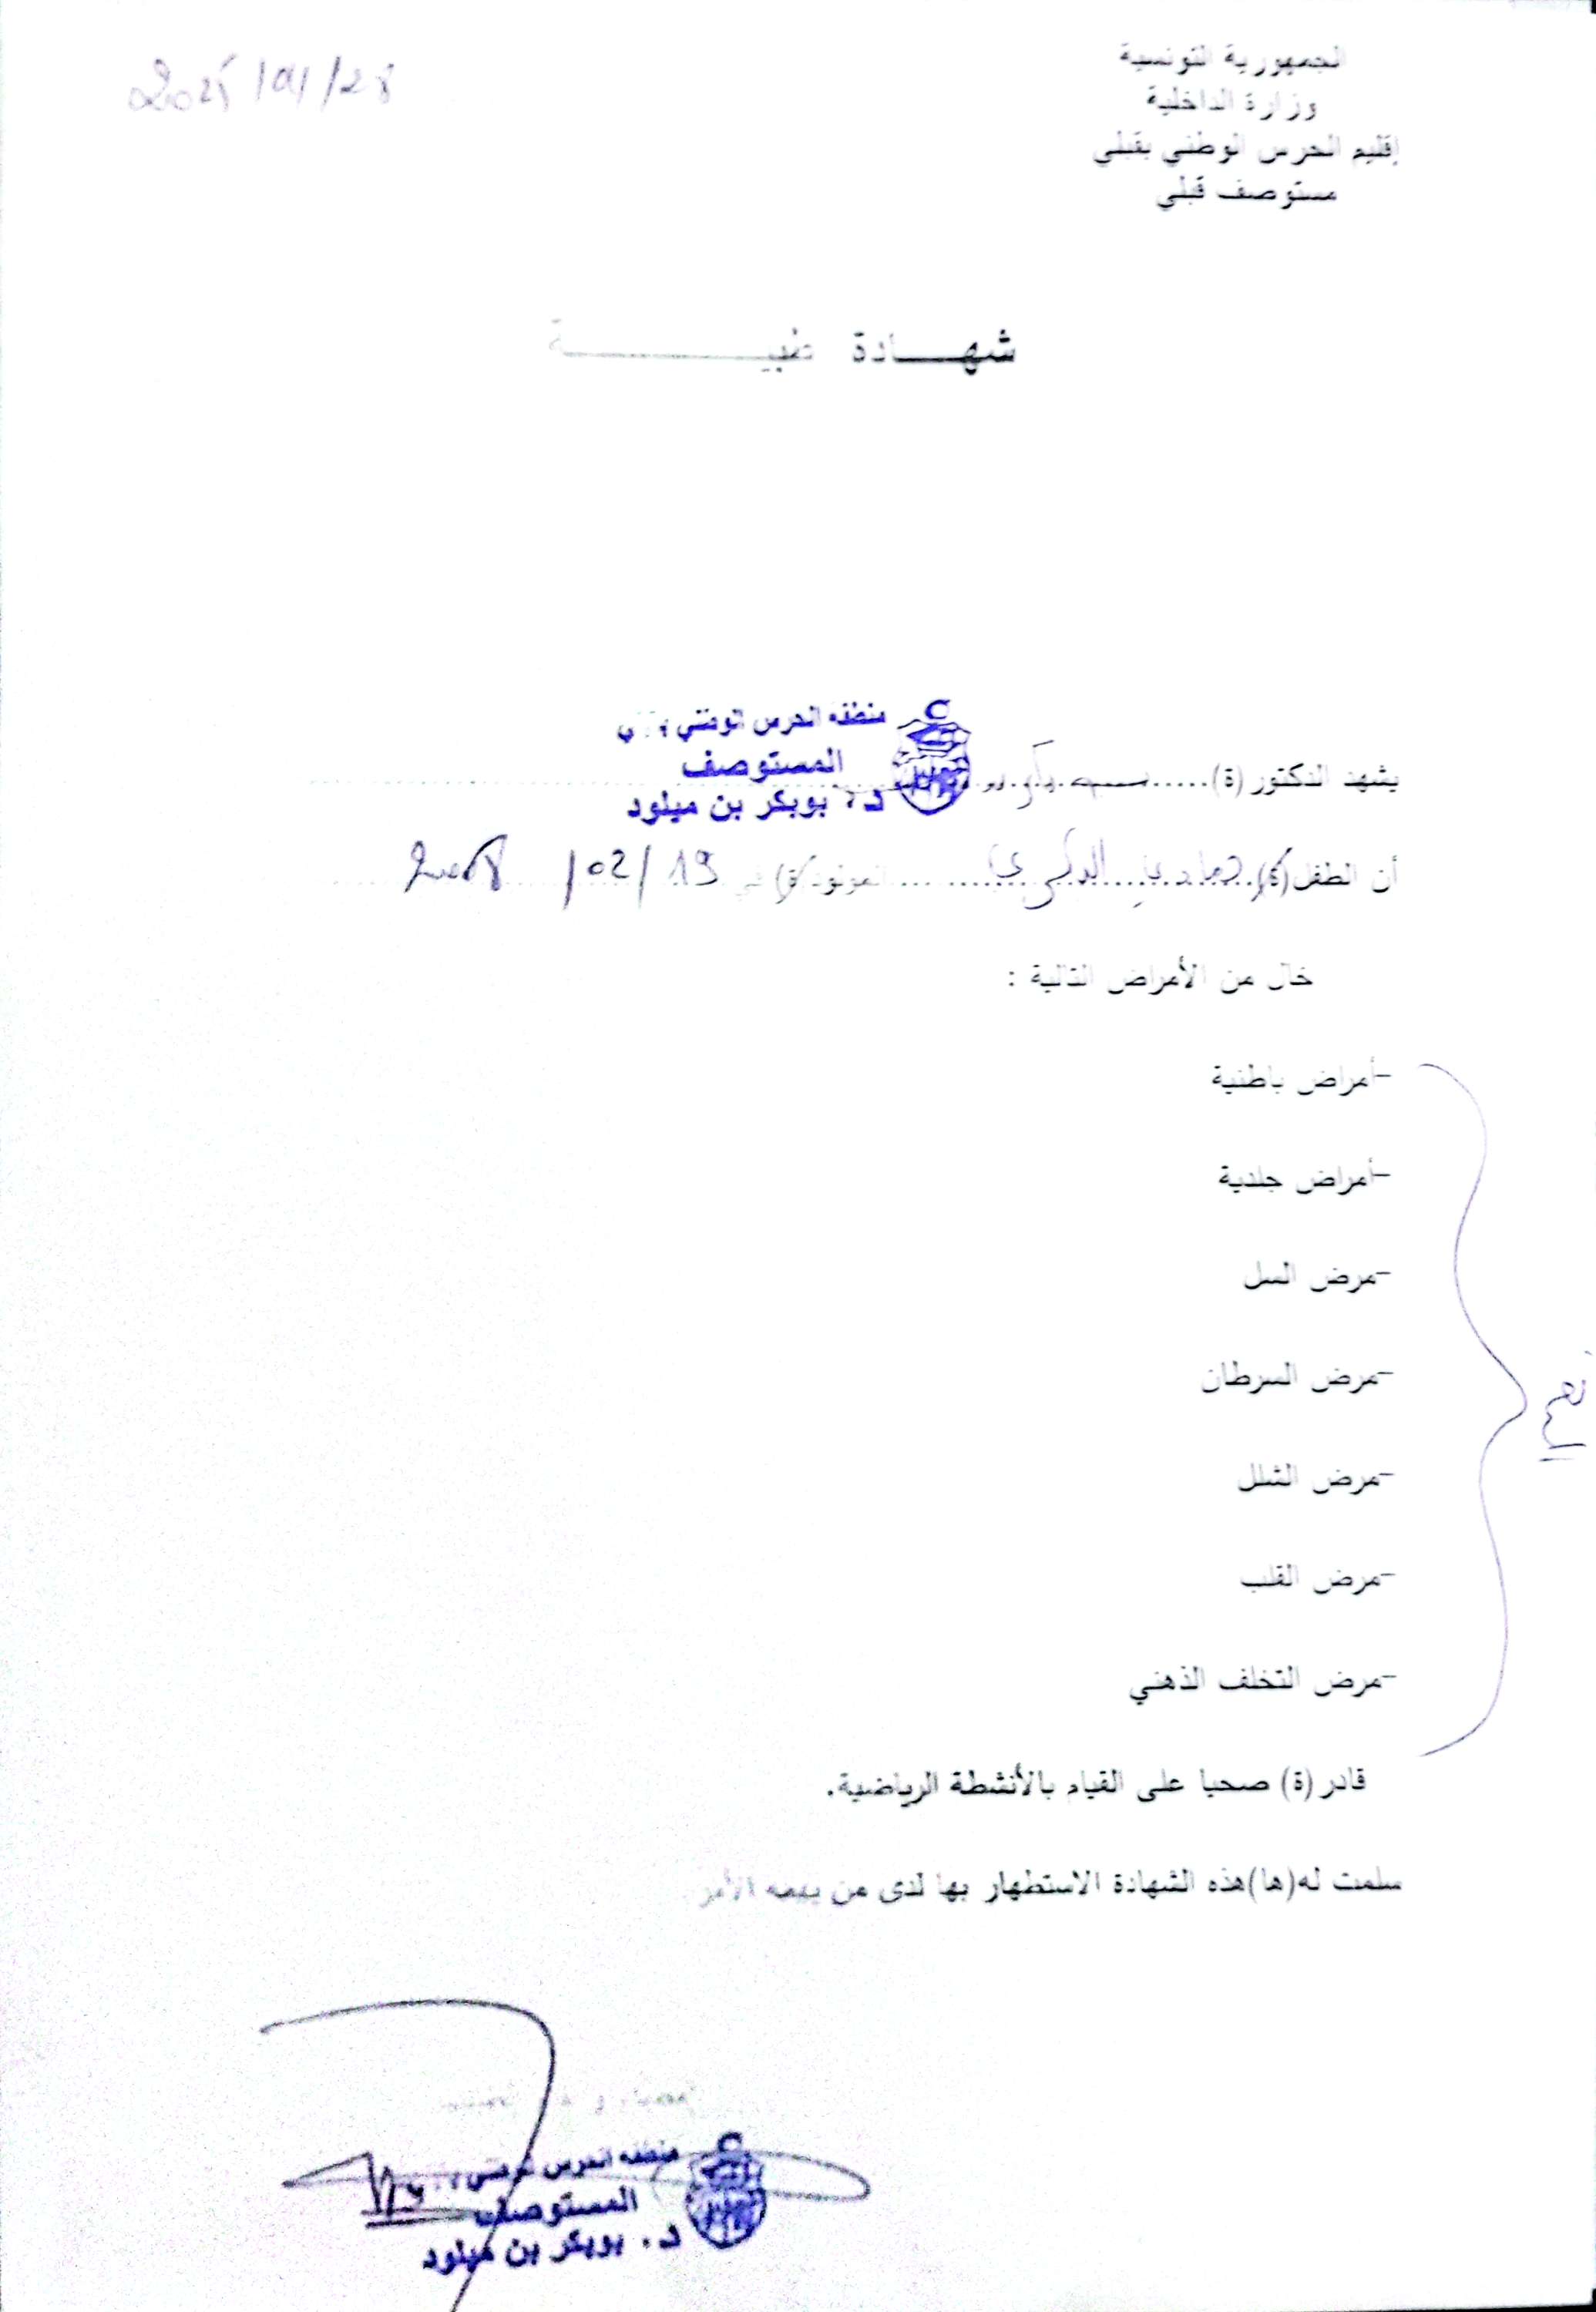 الجمهورية التونسية
وزارة الداخلية
إقليم الحرس الوطني بقبلي
مستوصف قبلي
شهـــادة طبيـــــــــة
منطقة الحرس الوطني
المستوصف
د. بوبكر بن ميلود
يشهد الدكتور (ة)
أن الطفل (ة) المولود (ة) في 19/02/ 2008
خال من الأمراض التالية :
-أمراض باطنية
-أمراض جلدية
-مرض السل
-مرض السرطان
-مرض الشلل
-مرض القلب
-مرض التخلف الذهني
قادر (ة) صحيا على القيام بالأنشطة الرياضية.
سلمت له(ها)هذه الشهادة الاستظهار بها لدى من يهمه الأمر
منطقة الحرس الوطني
المستوصف
د. بوبكر بن ميلود